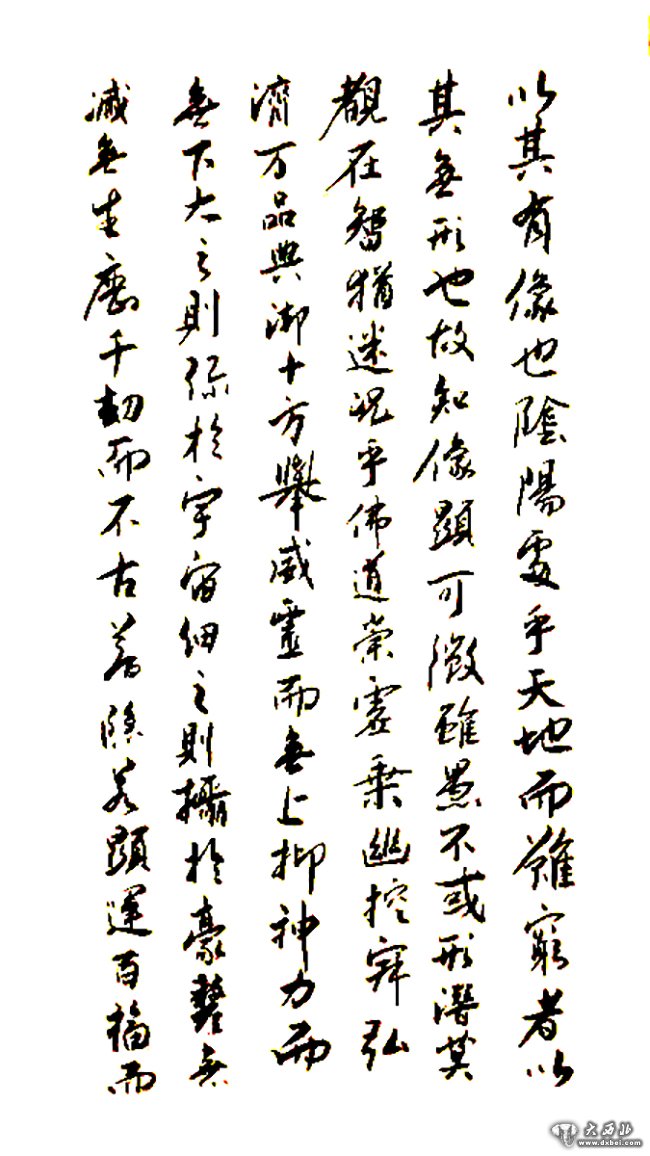 以其有像也陰陽處乎天地而難窮者以
其無形也故知像顯可徵雖愚不或形潛莫
覩在智猶迷況乎佛道崇虛乗幽控寂弘
濟万品典御十方舉威靈而無上抑神力而
無下大之則彌於宇宙細之則攝於豪釐無
滅無生歷千劫而不古若隱若顯運百福而
大西北
www.dxbei.com